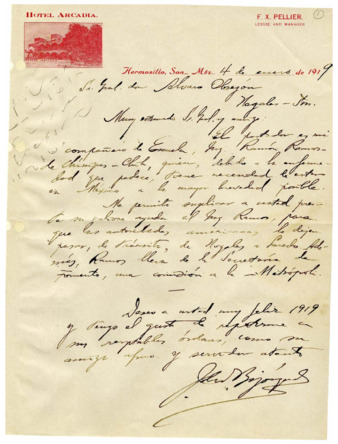 HOTEL ARCADIA.
F. X. PELLIER,
LESSEE AND MANAGER
1
Hermosillo, Son., Méx. 4 de enero de 1919
Sr. Gral. don Alvaro Obregón
Nogales - Son.
Muy estimado Sr. Gral. y amigo
El portador es mi
compañero de Escuela, Ing. Ramón Ramos
de Chinipas - Chih, quien, debido a la enferme
dad que padece, tiene necesidad de estar
en México a la mayor brevedad posible.
Me permito suplicar a usted pres
te su valiosa ayuda al Ing. Ramos, para
que las autoridades americanas lo dejen
pasar, de tránsito, de Nogales a
más, Ramos lleva de la Secretaría de
Fomento, una comisión a la Metrópoli.
Deseo a usted muy feliz 1919
y tengo el gusto de repetirme a
sus respetables órdenes, como su
amigo afmo y servidor atento